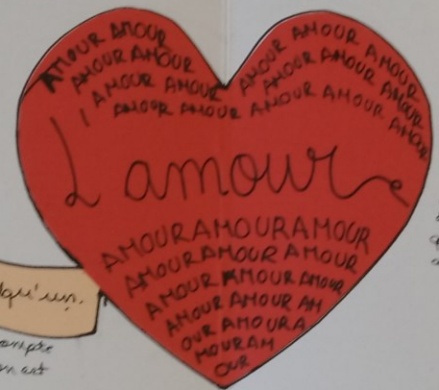 AMOUR AMOUR
AMOUR AMOUR
AMOUR AMOUR
AMOUR AMOUR
AMOUR AMOUR AMOUR
AMOUR AMOUR AMOUR
AMOUR AMOUR AMOUR
L'amour
AMOURAMOURAMOUR
AMOURAMOUR AMOUR
AMOUR AMOUR AMOUR
AMOUR AMOUR AM
OUR AMOURA
MOURAM
OUR
lqu'un.
ompte
n est